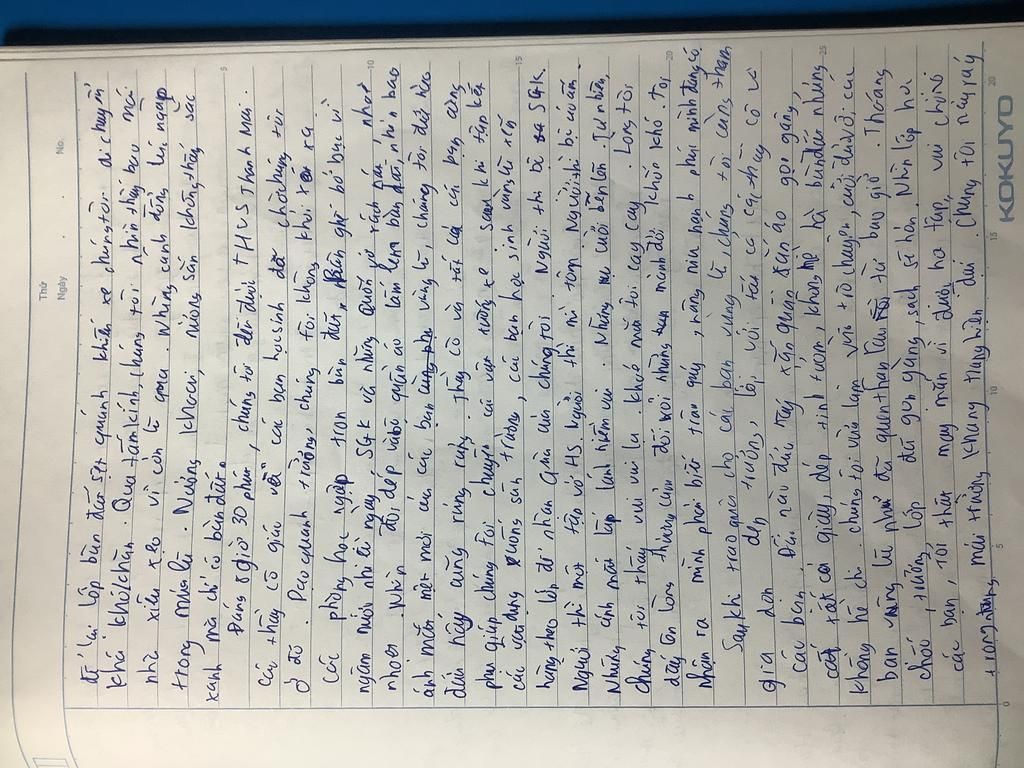 Thứ
Ngày
No.
để lại lớp bùn đất sét quánh khiến xe chúng tôi di chuyển
khá khó khăn. Qua tấm kính, chúng tôi nhìn thấy bao mái
nhà xiêu xẹo vì cơn lũ qua. Những cánh đồng lúa ngập
trong màu lũ. Nương khoai, nương sắn không thấy sắc
xanh mà chỉ có bùn đất.
Đúng 8 giờ 30 phút, chúng tôi đến được THCS Thanh Mai.
Các thầy cô giáo với các bạn học sinh đã chờ chúng tôi
ở đó. Dạo quanh trường, chúng tôi không khỏi xót xa
Các phòng học ngập tràn bùn đất, Bàn ghế bỏ bục vì
ngâm nước nhiều ngày, SGK và những quyển vở rách nát, nhoè
nhoẹt. Nhìn đôi dép và bộ quần áo lấm lem bùn đất, nhìn bao
ánh mắt mệt mỏi của các bạn vùng lũ, chúng tôi đứa nào
đứa nấy cũng rưng rưng. Thầy cô và tất cả các bạn cùng
phụ giúp chúng tôi chuyển cả vật xuống xe sau khi tập kết
các vật dụng xuống sân trường, các bạn học sinh vùng lũ xếp
hàng theo lớp để nhận quà của chúng tôi. Người thì bộ SGK.
Người thì một tập vở HS người thì mì tôm. Người thì bị quần áo.
Những ánh mắt lấp lánh niềm vui. Những nụ cười bẽn lẽn. Tự nhiên,
chúng tôi thấy vui vui lạ. Khoé mắt tôi cay cay. Lòng tôi
đầy lên lòng thương cảm đối với những mảnh đời khốn khó. Tôi
nhận ra mình phải biết trân quý, nâng niu hạnh phúc mình đang có.
Sau khi trao quà cho các bạn vùng lũ, chúng tôi cùng tham
gia dọn dẹp trường, lớp, với tất cả các thầy cô và
các bạn. Đứa nào đứa nấy xắn quần xắn áo gọn gàng,
cất tất cả giày, dép tinh tươm, không nề hà bùn đất nhưng
không hề chi. Chúng tôi vừa làm vừa trò chuyện, cười đùa với các
bạn vùng lũ như đã quen thân từ bao giờ. Thoáng
chốc, trường lớp đã gọn gàng, sạch sẽ hẳn. Nhìn lớp học
các bạn, tôi thật may mắn vì được học tập, vui chơi
trong một môi trường khang trang hiện đại. Chúng tôi nay
KOKUYO
0
5
10
15
20
5
10
15
20
25